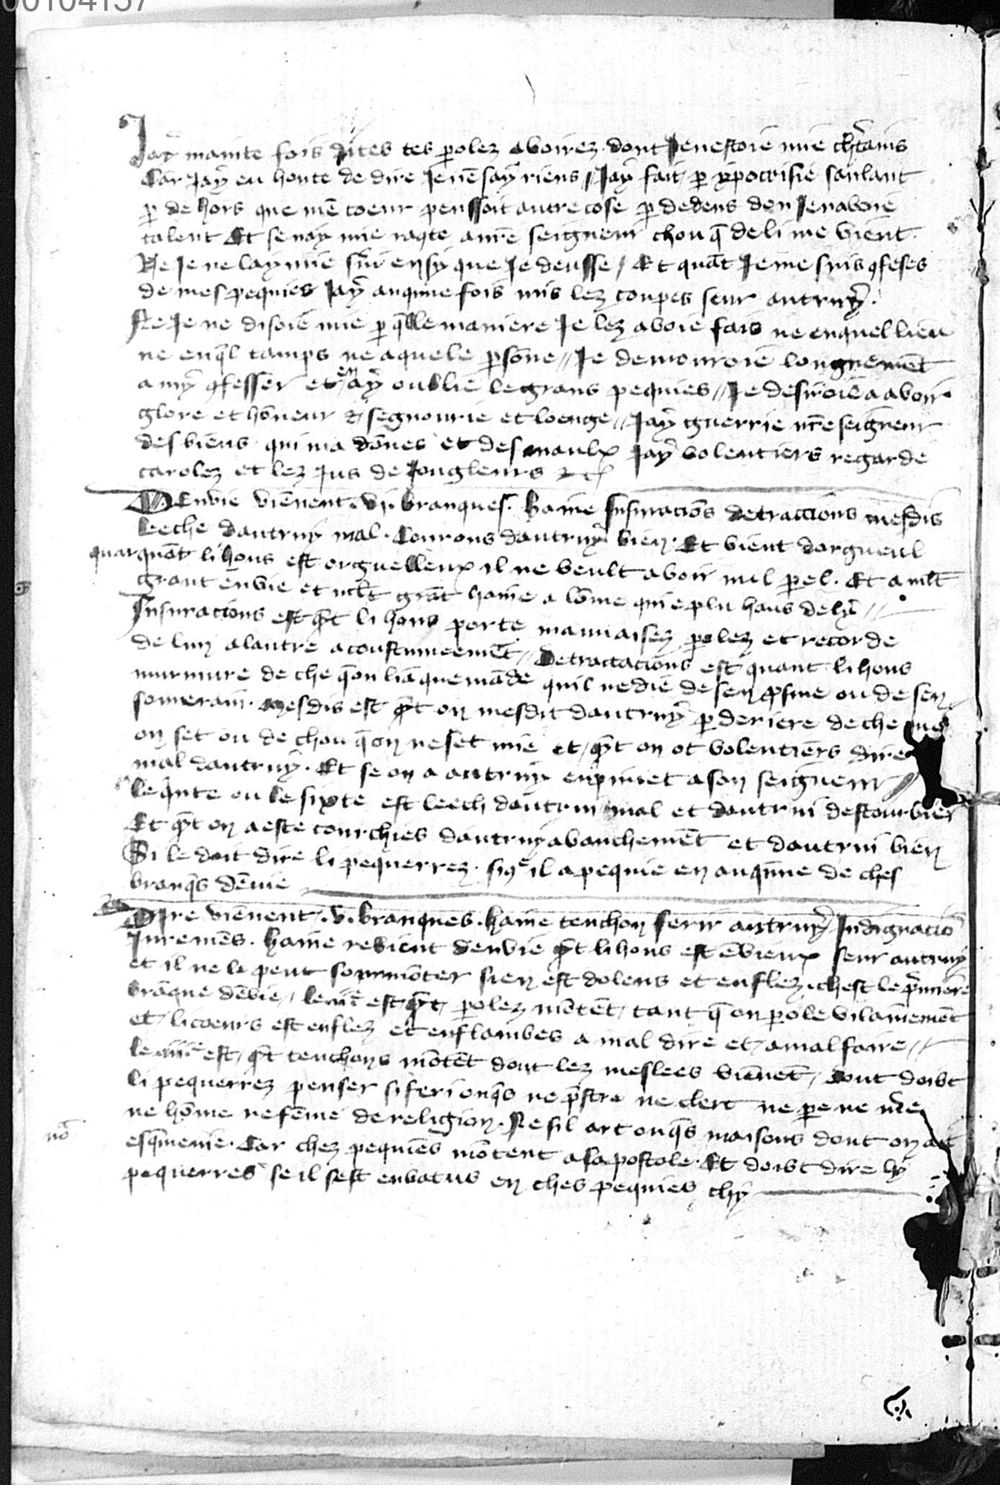 00104157
Jay mainte fois dites tes polez a voirez dont Je nestoie mie chtains
Car Jay eu honte de dire Je ne say riens / Jay fait p ypocrisie sanlant
p de hors que me coeur penssoit autre cose p dedens don Jenavoie
talent Et se nay mie raqte a nre seigneur chou q de li me vient
Ne Je ne lay mie suir ensy que Je deusse / Et quat Je me suis qfeses
de mes pequies Jay auqune fois mis lez coupes seur autruy
Ne Je ne disoie mie p qlle maniere Je lez avoie fais ne en quel lieu
ne en ql tamps ne a quele psone // Je demouroie longuemet
a my qfesser et en ay oublie le grans pequies // Je desiroie a avoir
glore et honeur & segnourie et loenge // Jay guerrie nre seigneur
des biens qui ma dones et des maulx Jay volentiers regarde
carolez et lez Jus de Jongleurs
DEnvie vienent vij branques . haine Insuracios detractions mesdis
Leche dautruy mal . Courons dautruy bien . Et vient dorgueul
quar quat li hons est orguelleux il ne veult avoir nul pel . Et a mlt
grant envie et mlt grat haine a lome qui e plu haus de ly //
Insuracions est qt li hons porte mauvaisez polez et recorde
de lun a lautre a coustumeemet // Detractacions est quant li hons
murmure de che qon lia quemade quil ne die de sen psme ou de sen
souverain . Mesdis est qt on mesdit dautruy p deriere de che que
on set ou de chou qon ne set mie et / qt on ot volentiers dire
mal dautruy . Et se on a autruy enpiriet a son seigneur //
Le qnte ou le sixte est leech dautrui mal et dautrui destourbier
Et qt on a este courchies dautruy avanchemet et dautrui bien
Si le doit dire li pequerrez . sil a pequie en auqune de ches
branqs denvie
DIre vienent v branques . haine tenchon ferir autruy Indignatio
Juremes . haine revient denvie qt li hons est evieux seur autruy
et il ne le peut sourmoter sien est dolens et enflez . chest le pmiere
branque devie / le est qt polez motet / tant q on pole vilainement
et / li coeurs est enflez et enflambes a mal dire et / a mal faire //
le est / qt tenchons motet dont lez meslees vienet / dont doibt
li pequerrez penser si feri onqs ne pstre ne clerc ne pe ne me
ne home ne feme de religion . Ne sil art onqs maisons dont on
no
esqmenie . Car chez pequies motent a lapostole . Et doibt dire ly
pequerres se il sest enbatus en ches pequies chy